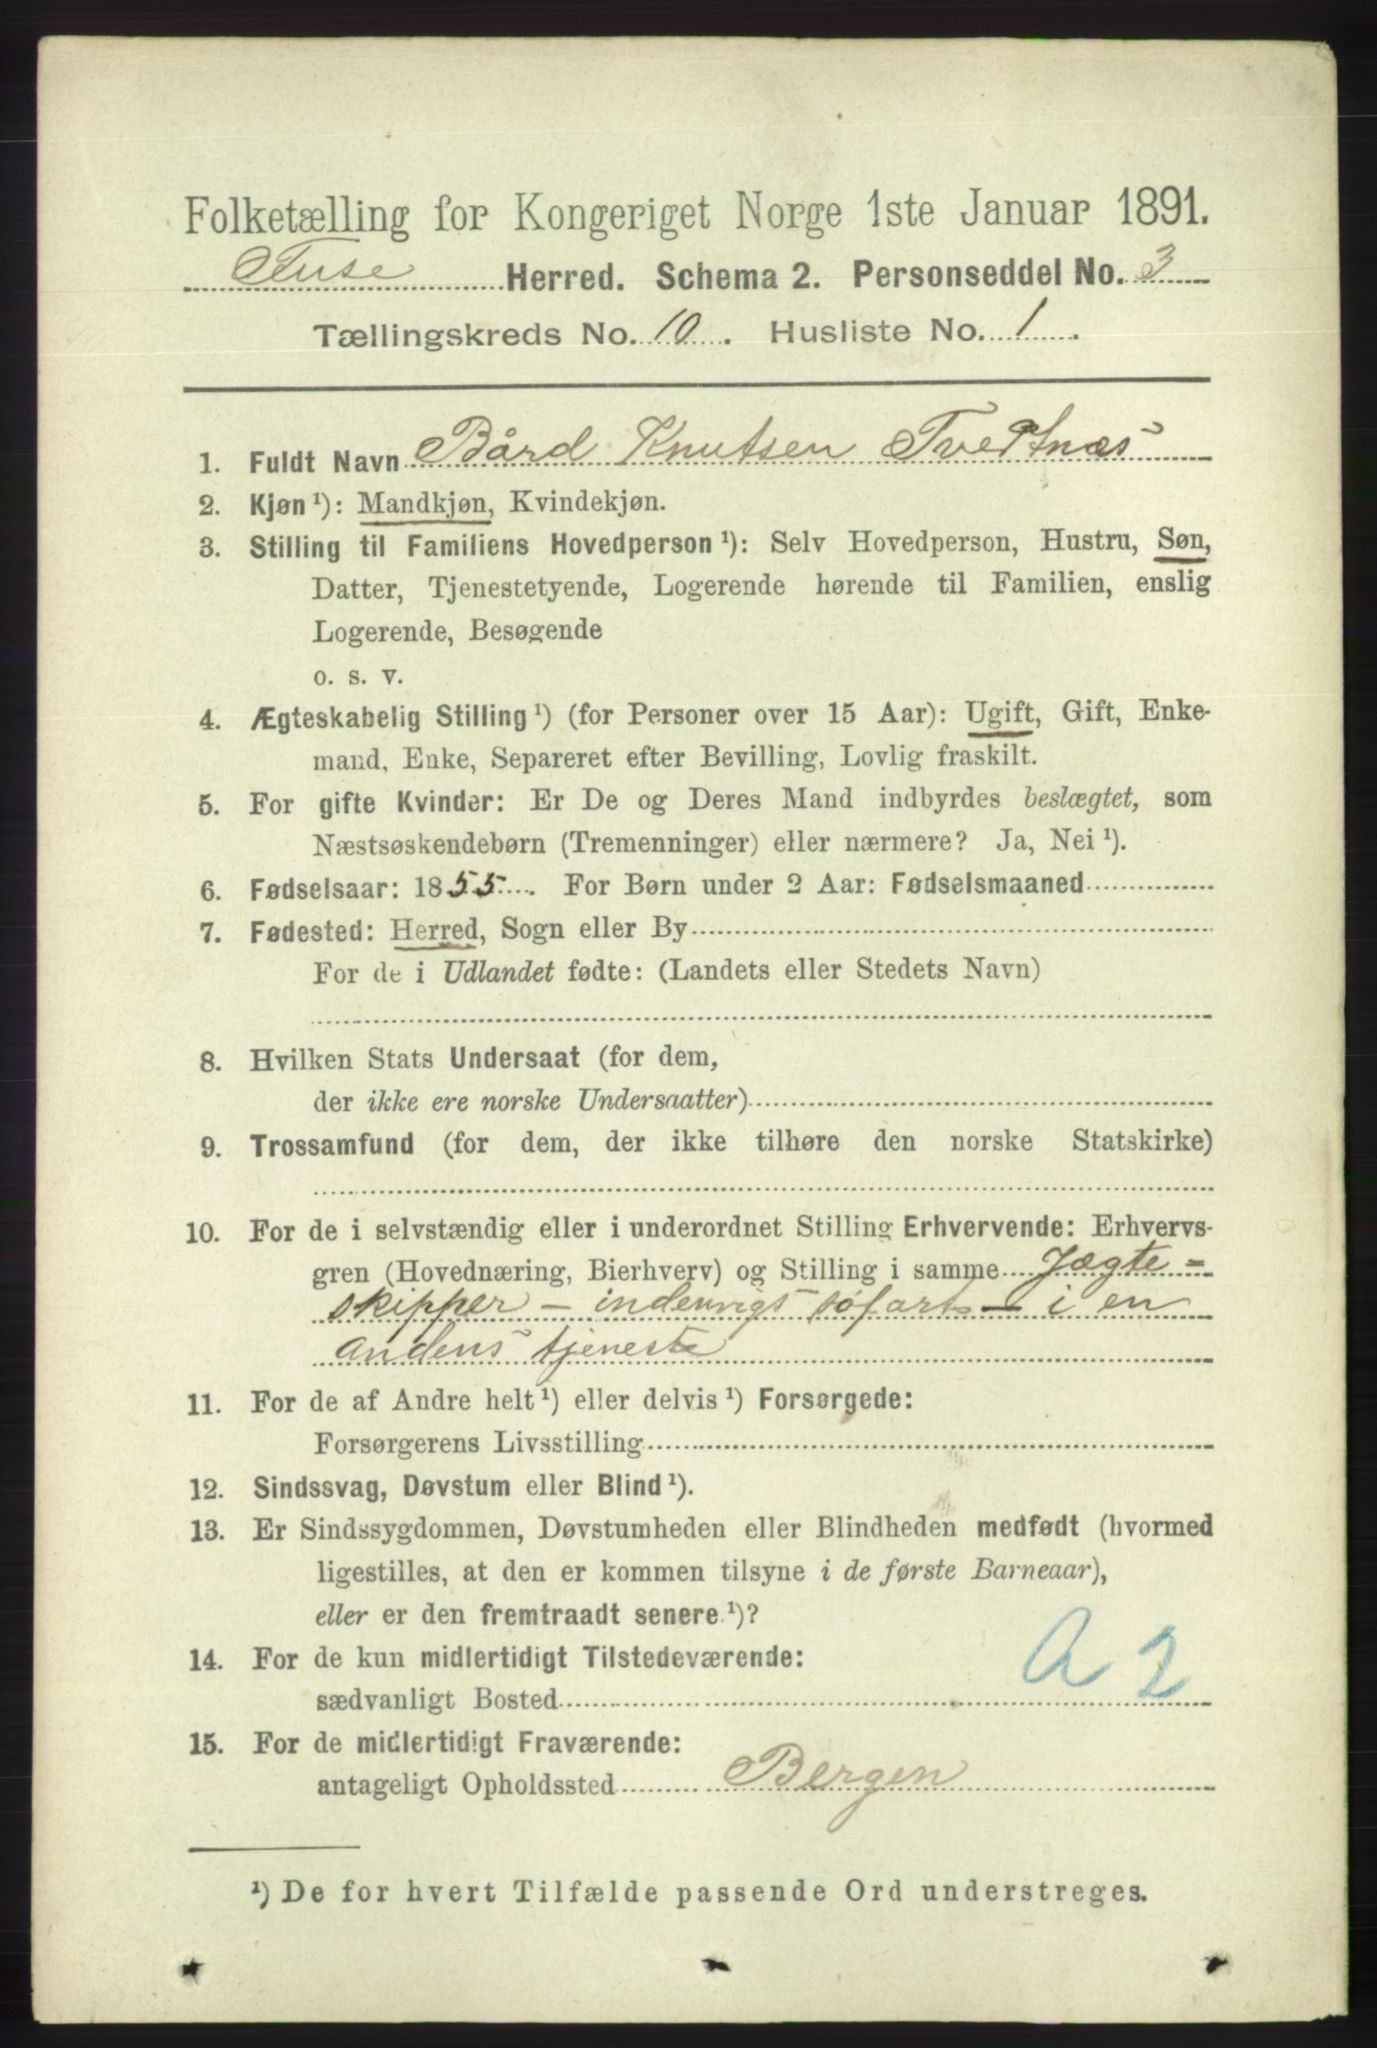 Folketælling for Kongeriget Norge 1ste Januar 1891.
Fuse Herred. Schema 2. Personseddel No. 3
Tællingskreds No. 10. Husliste No. 1.
1. Fuldt Navn Bård Knutsen Tvedtnæs
2. Kjøn¹): Mandkjøn, Kvindekjøn.
3. Stilling til Familiens Hovedperson¹): Selv Hovedperson, Hustru, Søn,
Datter, Tjenestetyende, Logerende hørende til Familien, enslig
Logerende, Besøgende
o. s. v.
4. Ægteskabelig Stilling¹) (for Personer over 15 Aar): Ugift, Gift, Enke-
mand, Enke, Separeret efter Bevilling, Lovlig fraskilt.
5. For gifte Kvinder: Er De og Deres Mand indbyrdes beslægtet, som
Næstsøskendebørn (Tremenninger) eller nærmere? Ja, Nei¹).
6. Fødselsaar: 1855. For Børn under 2 Aar: Fødselsmaaned
7. Fødested: Herred, Sogn eller By
For de i Udlandet fødte: (Landets eller Stedets Navn)
8. Hvilken Stats Undersaat (for dem,
der ikke ere norske Undersaatter)
9. Trossamfund (for dem, der ikke tilhøre den norske Statskirke)
10. For de i selvstændig eller i underordnet Stilling Erhvervende: Erhvervs-
gren (Hovednæring, Bierhverv) og Stilling i samme Jægte-
skipper - indenrigs søfart - i en
andens tjeneste
11. For de af Andre helt¹) eller delvis¹) Forsørgede:
Forsørgerens Livsstilling
12. Sindssvag, Døvstum eller Blind¹).
13. Er Sindssygdommen, Døvstumheden eller Blindheden medfødt (hvormed
ligestilles, at den er kommen tilsyne i de første Barneaar),
eller er den fremtraadt senere.¹)?
14. For de kun midlertidigt Tilstedeværende:
sædvanligt Bosted
A 2
15. For de midlertidigt Fraværende:
antageligt Opholdssted Bergen
¹) De for hvert Tilfælde passende Ord understreges.